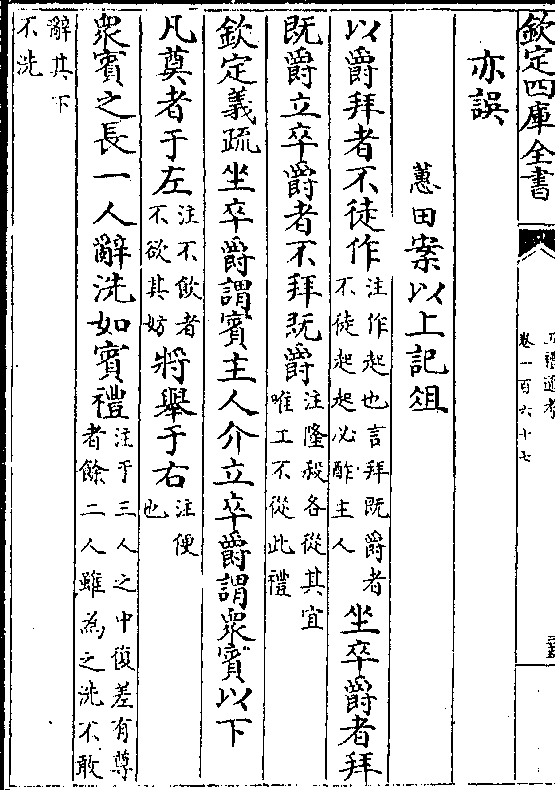 欽定四庫全書
五禮通考
卷一百六十七
亦誤
蕙田案以上記俎
以爵拜者不徒作注作起也言拜既爵者不徒起起必酢主人坐卒爵者拜
既爵立卒爵者不拜既爵注隆殺各從其宜唯工不從此禮
欽定義疏坐卒爵謂賓主人介立卒爵謂衆賓以下
凡奠者于左注不飲者不欲其妨將舉于右注便也
衆賓之長一人辭洗如賓禮注于三人之中復差有尊者餘二人雖為之洗不敢
辭其下不洗